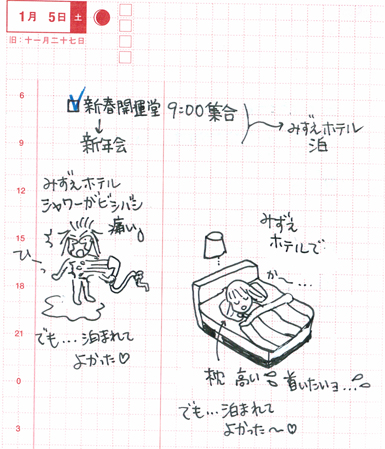 1月 5日 土
旧：十一月二十七日
6
9
12
15
18
21
0
3
新春開運堂 9:00集合
新年会
みずえホテル
泊
みずえホテル
シャワーがビシバシ
痛い。
ひーっ
でも…泊まれて
よかった♡
みずえ
ホテルで
がー…
枕 高い 首いたいョ…
でも…泊まれて
よかった〜♡